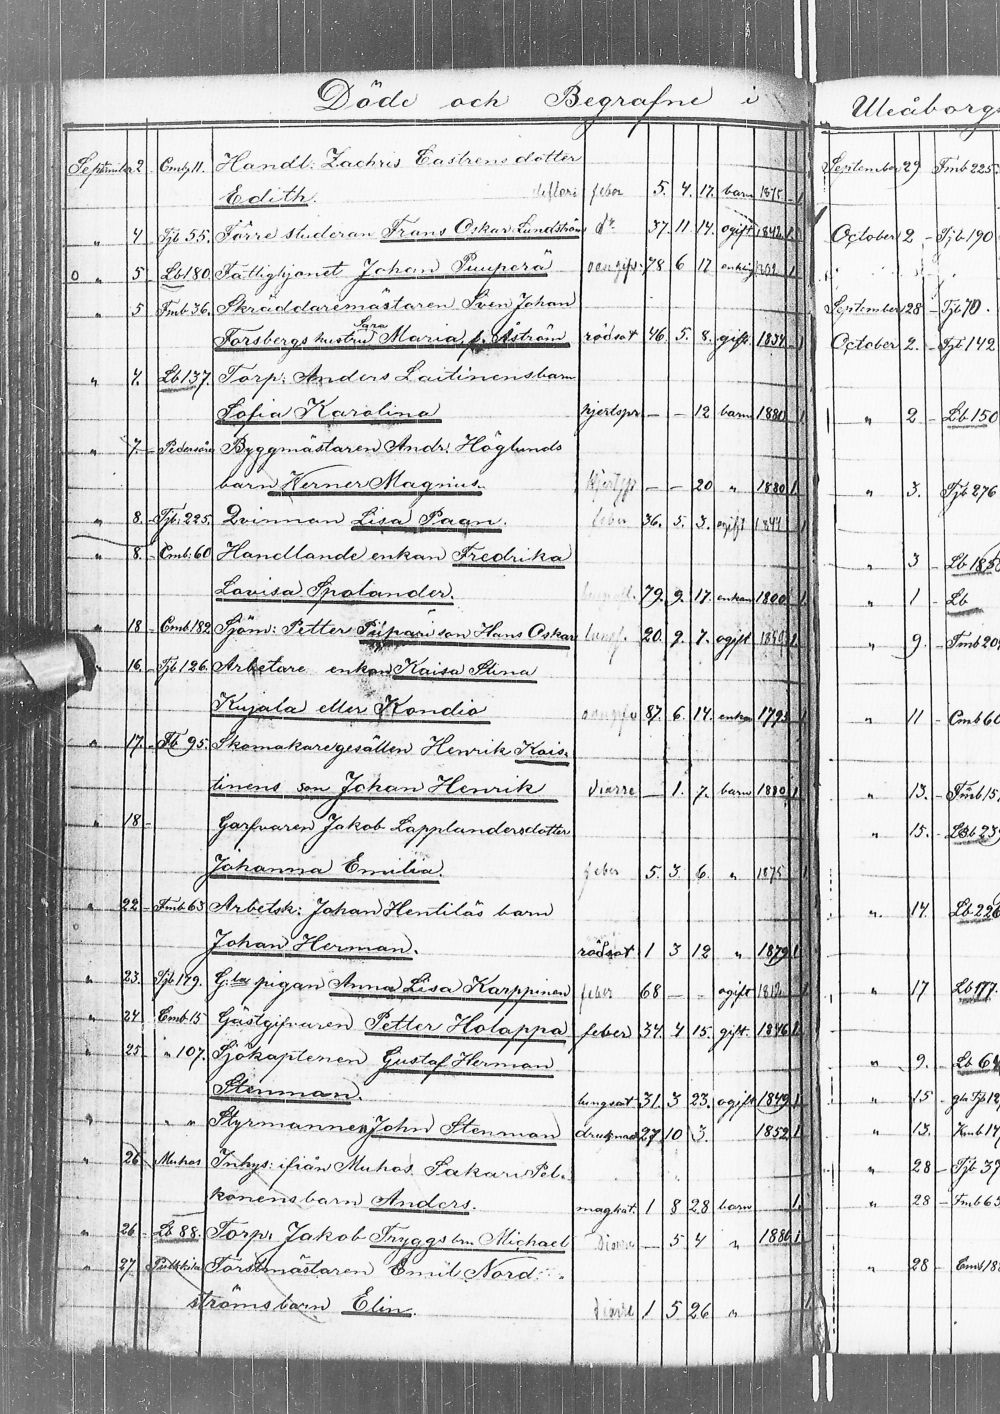 Döde och Begrafne i Uleåborgs
September 2 Cmb 11. Handl: Zachris Castrens dotter
Edith. difteri feber 5. 4. 17. barn 1875 1
" 4 Tjb 55. Förre studeran Frans Oskar Lundström do 37. 11. 14. ogift 1842 1
o " 5 Lb 180 Fattighjonet Johan Puuperä 78 6 17 1
" 5 Fmb 36. Skräddaremästaren Sven Johan
Forsbergs hustru Sara Maria f. Åström rödsot 46. 5. 8. gift. 1834 1
" 7. Lb 137. Torp: Anders Laitinens barn
Sofia Karolina hjertspr — — 12 barn 1880 1
" 7. Pedersöre Byggmästaren Andr. Höglunds
barn Verner Magnus. — — 20 " 1880 1
" 8. Tjb. 225. Qvinnan Lisa Paan. feber 36. 5. 3. ogift 1844 1
" 8. Cmb. 60 Handlande enkan Fredrika
Lovisa Spolander. 79. 9. 17. enkan 1800 1
" 18 Cmb 182 Sjöm: Petter Piipari son Hans Oskar 20. 9. 7. ogift 1
" 16. Tjb 126. Arbetare enkan Kaisa Stina
Kujala eller Kondio 87. 6. 14. enkan 1793 1
" 17. 95. Skomakaregesällen Henrik Kais-
tinens son Johan Henrik diarre — 1. 7. barn 1880 1
" 18 Garfvaren Jakob Lapplanders dotter
Johanna Emilia feber 5. 3. 6. " 1875 1
" 22 Fmb 63 Arbetsk: Johan Hentiläs barn
Johan Herman. rödsot 1 3 12 " 1879 1
" 23. Tjb 179. G:la pigan Anna Lisa Karppinen feber 68 — — ogift 1812 1
" 24. Cmb 15 Gästgifvaren Petter Holappa feber 34. 4 15. gift. 1846 1
" 25 " 107. Sjökaptenen Gustaf Herman
Stenman. lungsot 31. 3 23. ogift 1849 1
" " " Styrmannen John Stenman drunknad 27 10 3. 1852 1
" 26 Muhos Inhys: ifrån Muhos Sakari Pel-
konens barn Anders. magkat. 1 8 28 barn 1.
" 26 Lb 88. Torp: Jakob Tryggs bn Michael Diarre — 5 4 " 1880 1
" 27 Pulkkila Forstmästaren Emil Nord-
ströms barn Elin. diarre 1 5 26 " 1
September 29 Fmb 225.
October 2 Tjb 190
September 28 Tjb 70.
October 2. Tjb 142
" 2. Lb 150
" 3. Tjb 276
" 3 Lb 185
" 1 Lb
" 9. Fmb 20
" 11 Cmb 60
" 13. Fmb 15
" 15. Lb 23
" 14. Lb 226
" 17 Lb 177.
" 9. Lb 64
" 15 Tjb 12
" 13. Kmb 14
" 28 Tjb 37
" 28 Fmb 63
" 28 Cmb 18